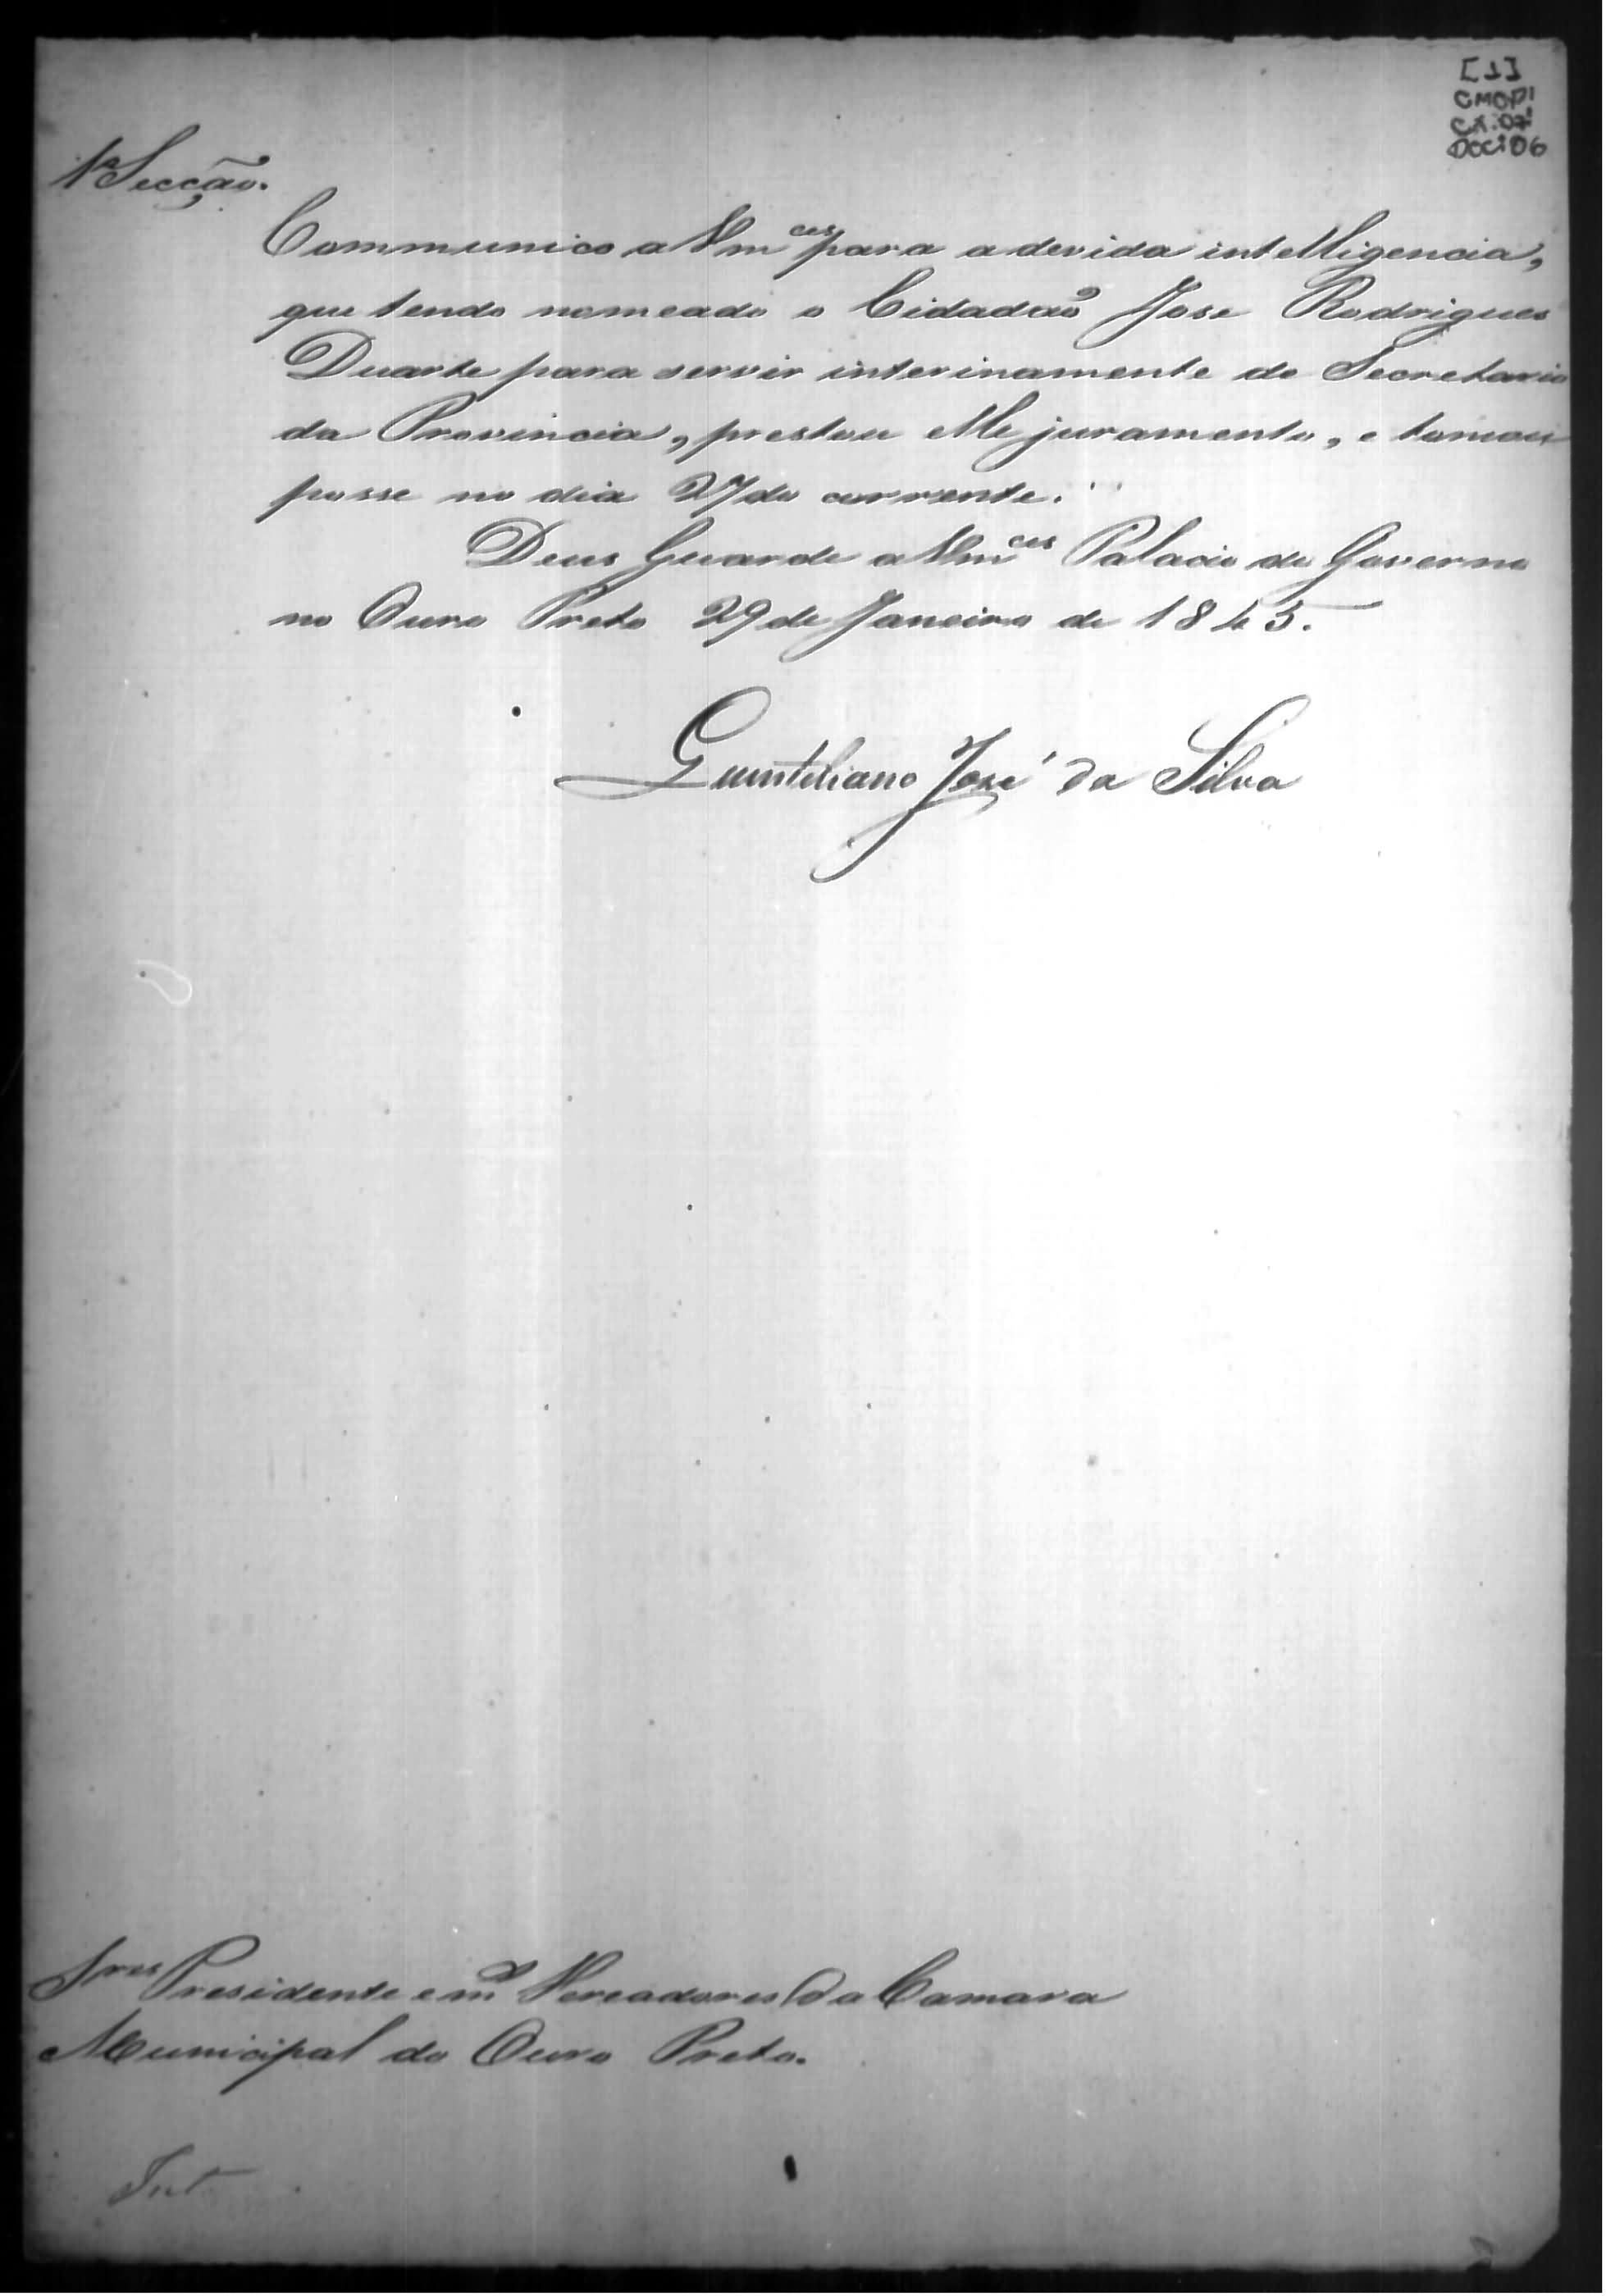 [1]
CMOP1
CX.07
DOC:06
1ª Secção.
Communico a Vm.ces para a devida intelligencia,
que tendo nomeado o Cidadaõ Jose Rodrigues
Duarte para servir interinamente de Secretario
da Provincia, prestou elle juramento, e tomou
posse no dia 27 do corrente.
Deus Guarde a Vm.ces Palacio do Governo
no Ouro Preto 29 de Janeiro de 1845.
Quintiliano José da Silva
Snres Presidente e m.s Vereadores da Camara
Municipal do Ouro Preto.